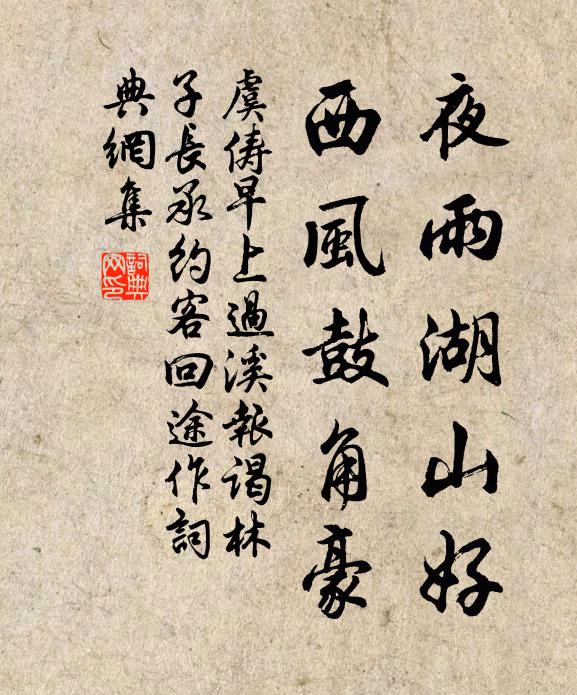 夜雨湖山好
西風鼓角豪
虞儔早上過溪報謁林
子長承約客回途作詞
典網集
詞典網印